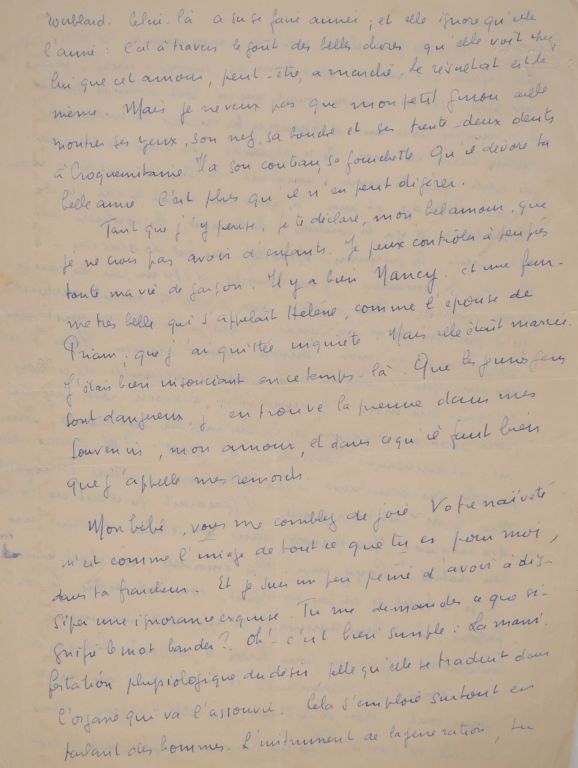 roublard. Celui-là a su se faire aimer, et elle ignore qu'elle
l'aime: C'est à travers le goût des belles choses qu'elle voit chez
lui que cet amour, peut-être, a marché. Le résultat est le
même. Mais je ne veux pas que mon petit
montre ses yeux, son nez, sa bouche et ses trente-deux dents
à Croquemitaine. Il a son couteau, sa fourchette. Qu'il dévore ta
belle amie. C'est plus qu'il n'en peut digérer.
Tant que j'y pense, je te déclare, mon bel amour, que
je ne crois pas avoir d'enfants. Je peux contrôler à peu près
toute ma vie de garçon. Il y a bien Nancy, et une fem-
me très belle qui s'appelait Hélène, comme l'épouse de
Priam, que j'ai quittée inquiète. Mais elle était mariée.
J'étais bien insouciant en ce temps-là. Que les jeunes gens
sont dangereux, j'en trouve la preuve dans mes
souvenirs, mon amour, et dans ce qu'il faut bien
que j'appelle mes remords.
Mon bébé, vous me comblez de joie. Votre naïveté
m'est comme l'image de tout ce que tu es pour moi,
dans ta fraîcheur. Et je suis un peu peiné d'avoir à dis-
siper une ignorance exquise. Tu me demandes ce que si-
gnifie le mot bander? Oh! c'est bien simple: La mani-
festation physiologique du désir, telle qu'elle se traduit dans
l'organe qui va l'assouvir. Cela s'emploie surtout en
parlant des hommes. L'instrument de la génération, tu